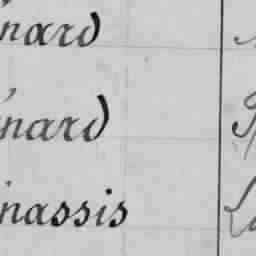 énard
énard
inassis